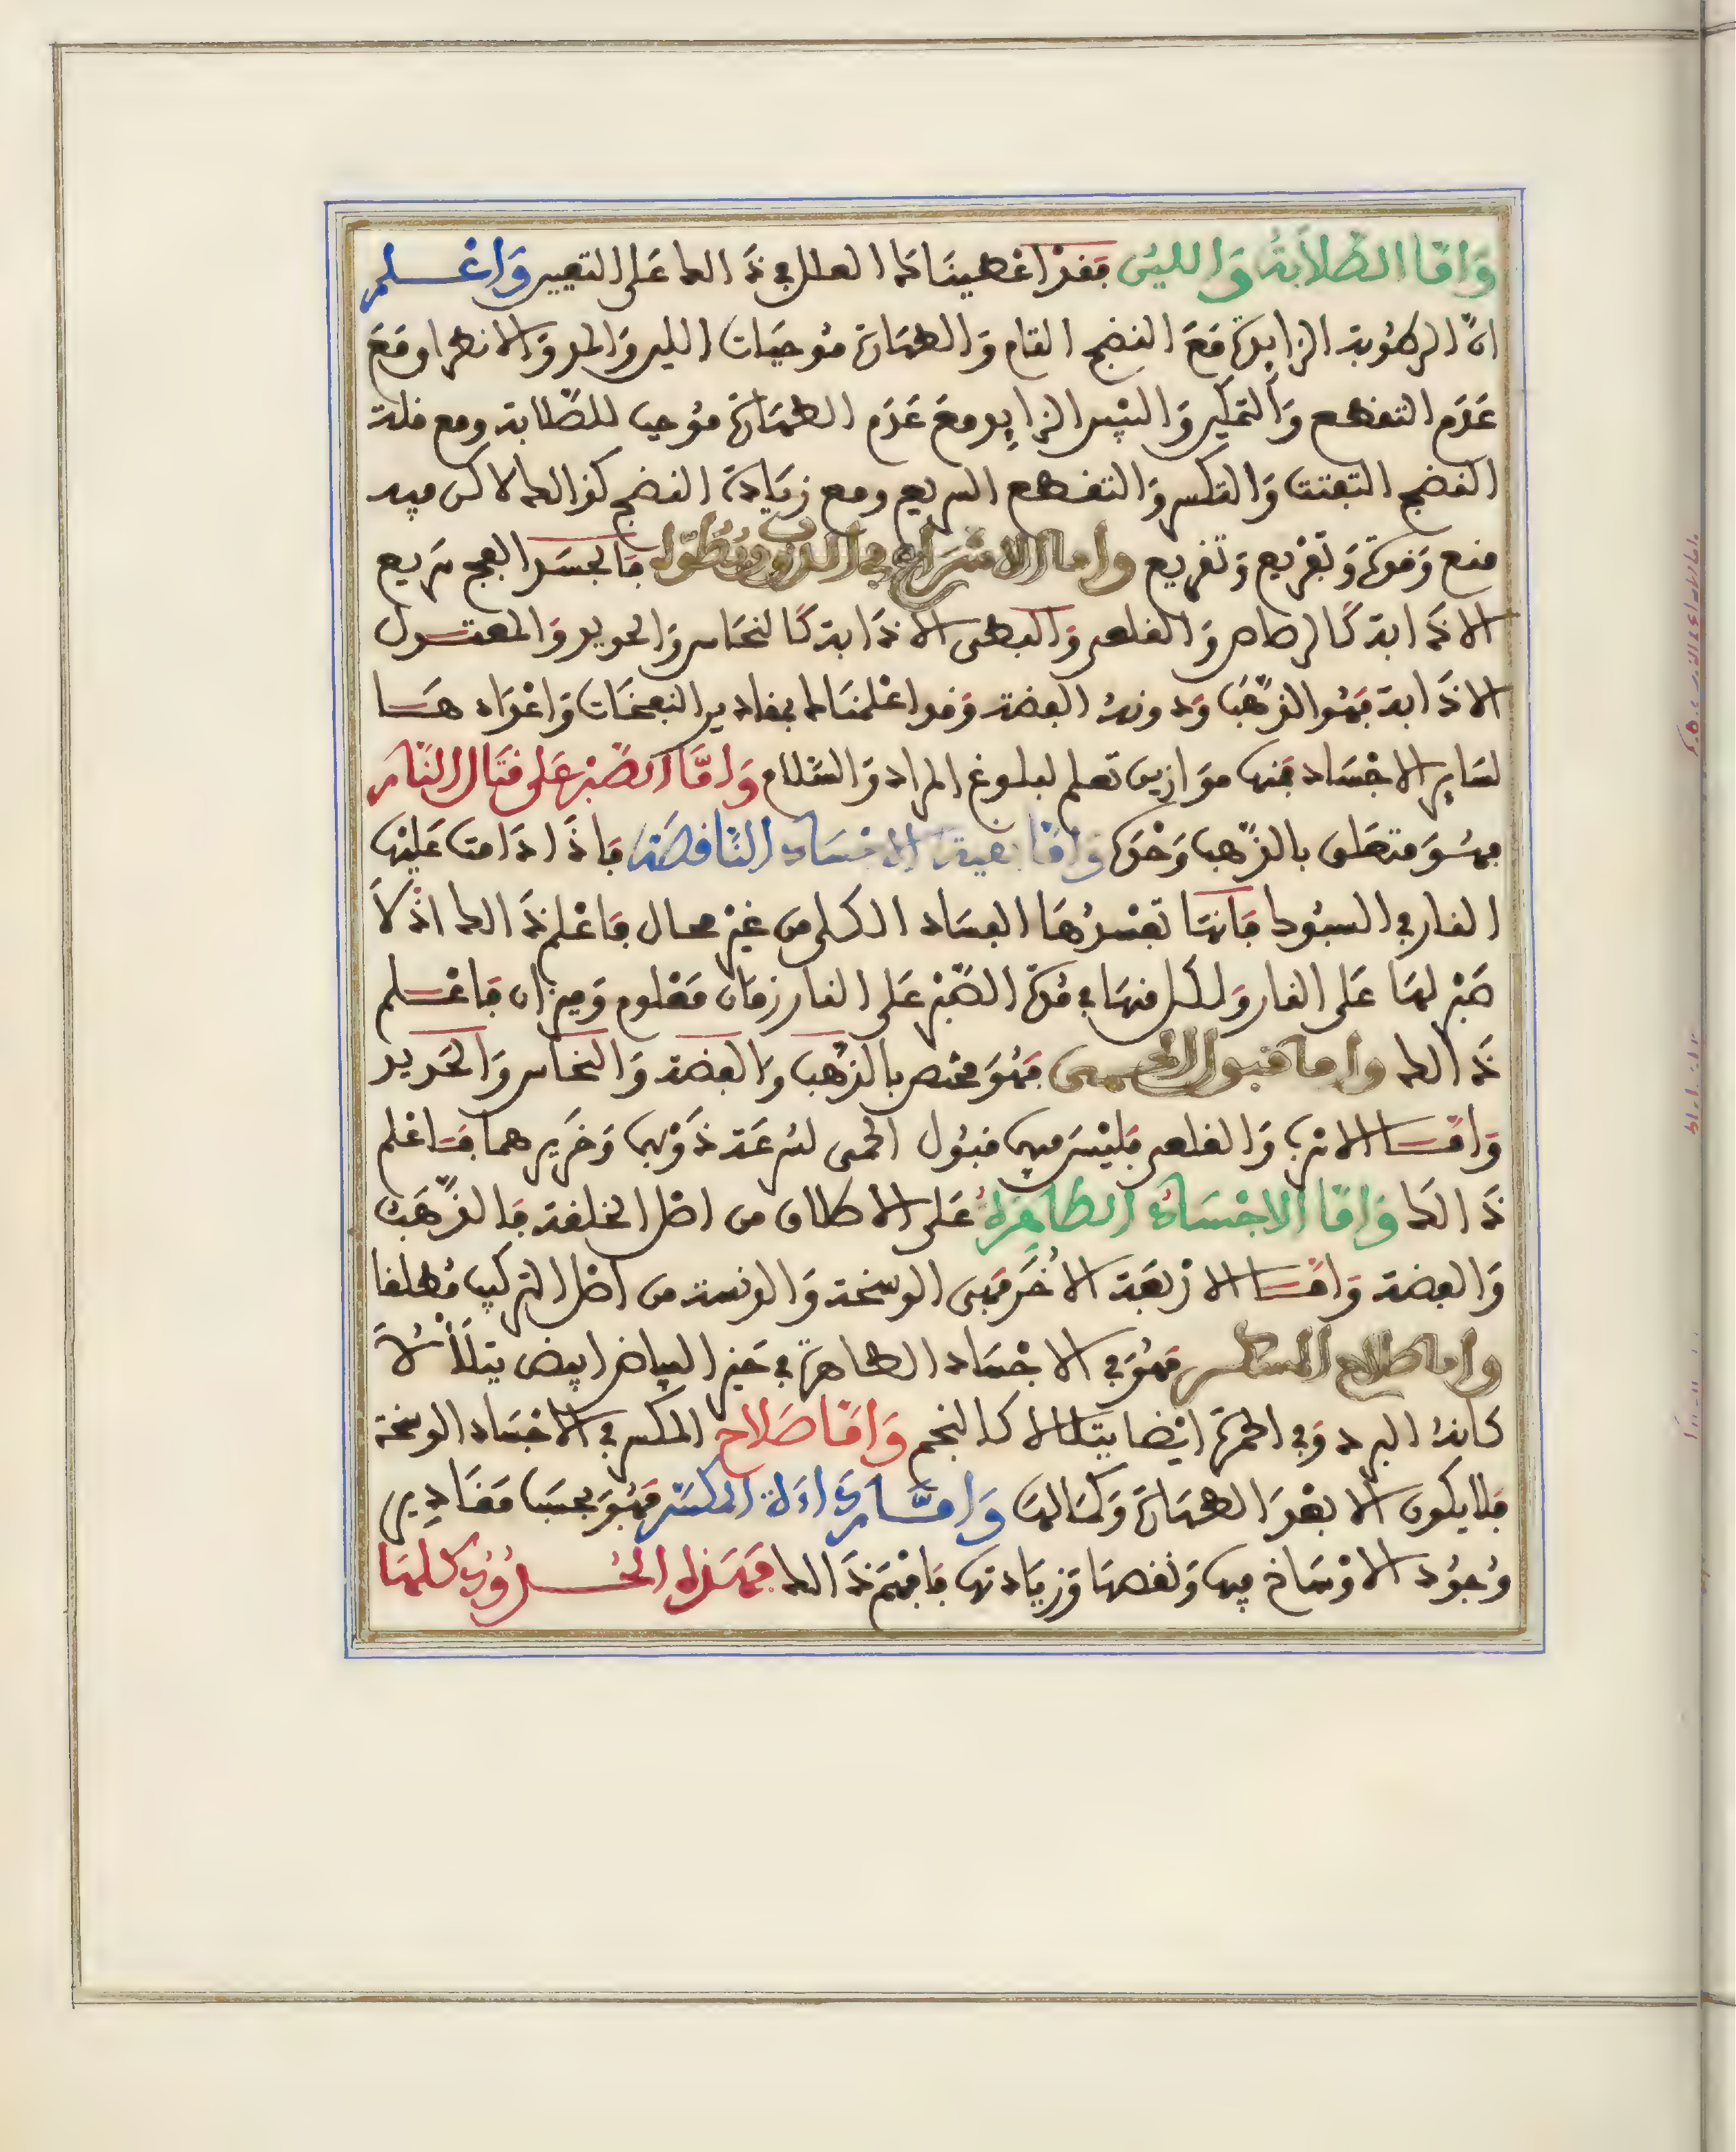 وَامَّا الصَّلَابَةُ وَاللين فَقَدْ اعْطينَاك العلل في ذَالك عَلى التعيين وَاعْلم
انَّ الرطُوبة الزايدة مَعَ النضج التام وَالطهَارَة مُوجبَات اللين وَالمد وَالانطرا ومَعَ
عَدَم التقطع وَالتمكين وَاليُبس الزايد ومعَ عَدَم الطهَارَة مُوجب للصَّلابة ومع قلة
النضج التفتت وَالتكسر وَالتقطع السريع ومع زيَادة النضج كذالك لاكن فيه
منع وَقوة وَتفزيع وَتفريع واما الاسْرَاع في الذوب وبُطؤه فَالجَسَد الفج سَريع
الاذَابة كَالرصاص وَالقلعي وَالبطى الاذَابة كَالنحَاس وَالحديد وَالمعتدل
الاذَابة فهُو الذهَب وَدونهُ الفضة وَقد اعْلمنَاك بمقادير النضجَات وَاعْدَاد هَا
لسَاير الاجْسَاد فمنها موَازين تعلم لبلوغ المراد وَالسَّلام وَامَّا الصَّبْر عَلى قتَال النَّار
فهُوَ متعلق بالذَّهب وَحْدَه وَامَّا بقية الاجْسَاد النَّاقصَة فَاذَا دَامت عَليْها
النار في السبُوك فَانهَا تفْسدُهَا الفسَاد الكلي من غيْر محال فَاعْلم ذَالك اذْ لَا
صَبْر لهَا عَلى النار وَلكل منهَا في مُدَّة الصَّبْر عَلى النار زمَان مَعْلوم وَميزان فَاعْلم
ذَالك واما قبول الحمى فهُوَ مختص بالذهَب وَالفضة وَالنحَاس وَالحَديد
وَامَّا الاسرب وَالقلعي فَليْسَ فيهما قبُول الحمى لسُرعَة ذَوْبهما وَخَريرهما فَاعْلم
ذَالكَ وَامَّا الاجْسَادُ الطاهِرَة عَلى الاطلاق من اصْل الخلقة فَالذَّهَب
وَالفضة وَامَّا الارْبَعَة الاخَر فهى الوسخة وَالدنسة من اصْل التركيب مُطلقا
واما صلاح المكسر فهُوَ في الاجْسَاد الطاهرة في حَيز البياض ابيض يتلَألأُ
كانهُ البرد وَفي الحمرَة ايْضا يتلالا كالنجم وَامَّا صَلَاح المكسر في الاجْسَاد الوسخة
فلا يكون الا بعْدَ الطهَارَة وَكمَالهَا وَامَّا رَدَاءَة المكسَّر فهُوَ بحسَب مَقَاديرِ
وُجُود الاوْسَاخ فيها وَنقصهَا وَزيَادتها فَافهَم ذَالك فهَذِه الحُدُود كلهَا